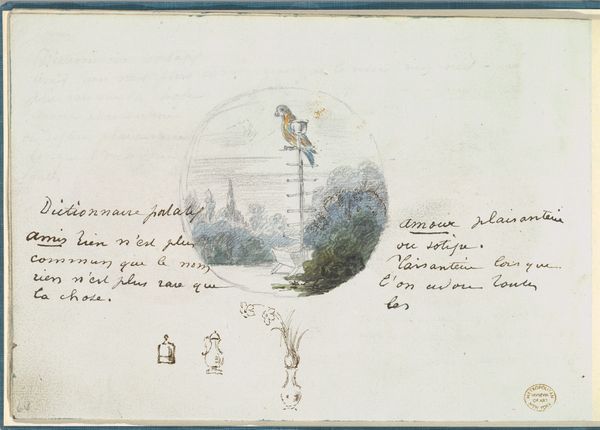 Dictionnaire portatif
amis rien n'est plus
commun que le nom
rien n'est plus rare que
la chose.
amour plaisanterie
ou sotise.
Plaisanterie lorsque
l'on adore toutes
les
METROPOLITAN
MUSEUM
OF ART
NEW YORK